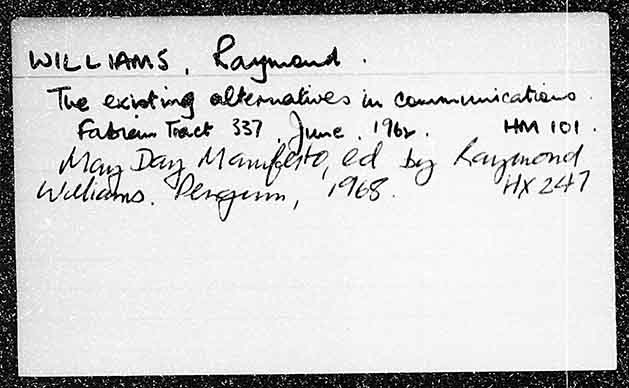 WILLIAMS, Raymond.
The existing alternatives in communications.
Fabian Tract 337, June, 1962. HM 101.
May Day Manifesto, ed by Raymond
Williams. Penguin, 1968. HX 247